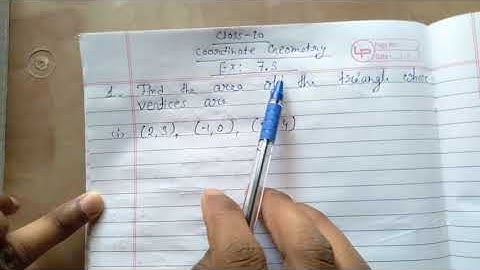 Class-10
Coordinate Geometry
Ex: 7.3
1. Find the area of the triangle whose
vertices are
(i) (2,3), (-1,0), ( 4)
LP